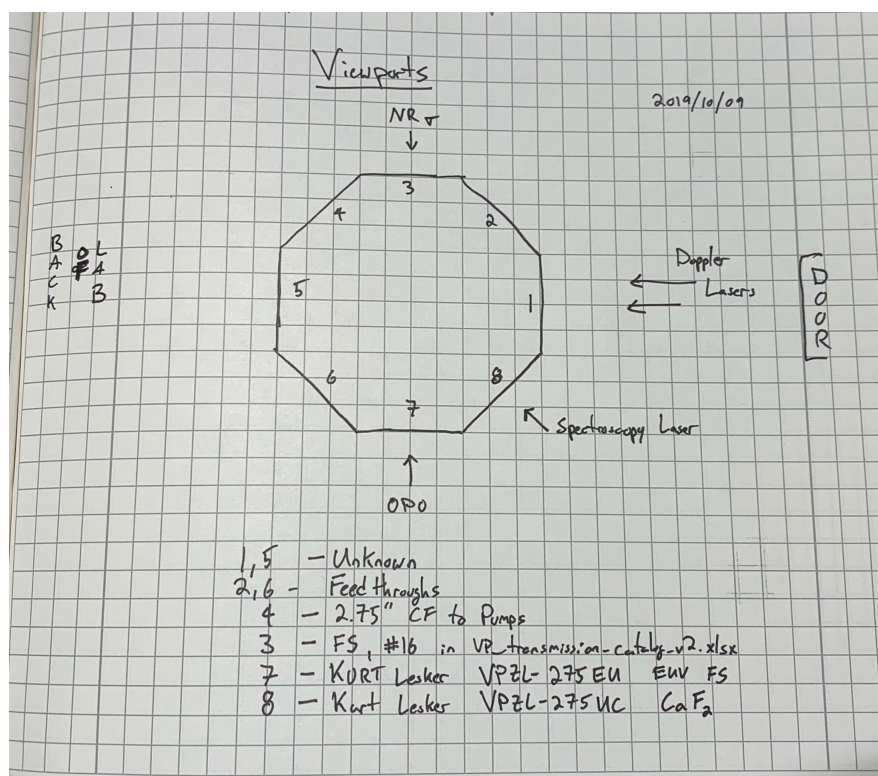 Viewports
2019/10/09
NRσ
↓
3
4
2
BACK
OF
LAB
5
1
Doppler
Lasers
DOOR
6
8
7
Spectroscopy Laser
↑
OPO
1,5 – Unknown
2,6 – Feedthroughs
4 – 2.75" CF to Pumps
3 – FS, #16 in VP_transmission-catalog-v2.xlsx
7 – KURT Lesker VPZL-275EU EUV FS
8 – Kurt Lesker VPZL-275UC CaF₂